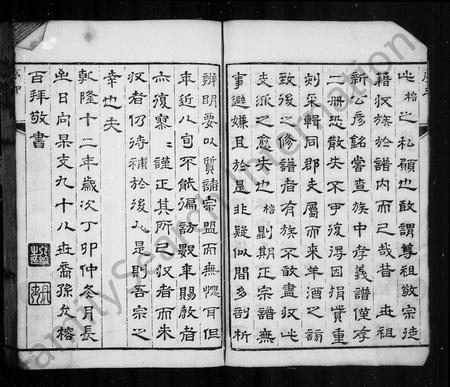 此楷之私願也敢謂尊祖敬宗徒
藉收族於譜內而已哉昔 世祖
新公彥銘嘗查族中孝義譜僅存
二冊恐散失不爭彼得因捐貲重
刻采輯同郡支屬而來羊酒之誚
致後之修譜者有族不敢盡收此
支派之愈失也 楷則期正宗譜無
事避嫌且於是非疑似間多剖析
辨明要以質諸宗盟而無愧耳但
年近八旬不能徧訪軼事賜教者
亦復寥寥謹正其所已收者而未
收者仍待補於後人是則吾宗之
幸也夫
乾隆十二年歲次丁卯仲冬月長
至日向杲支九十八世裔孫允楷
百拜敬書
FamilySearch International